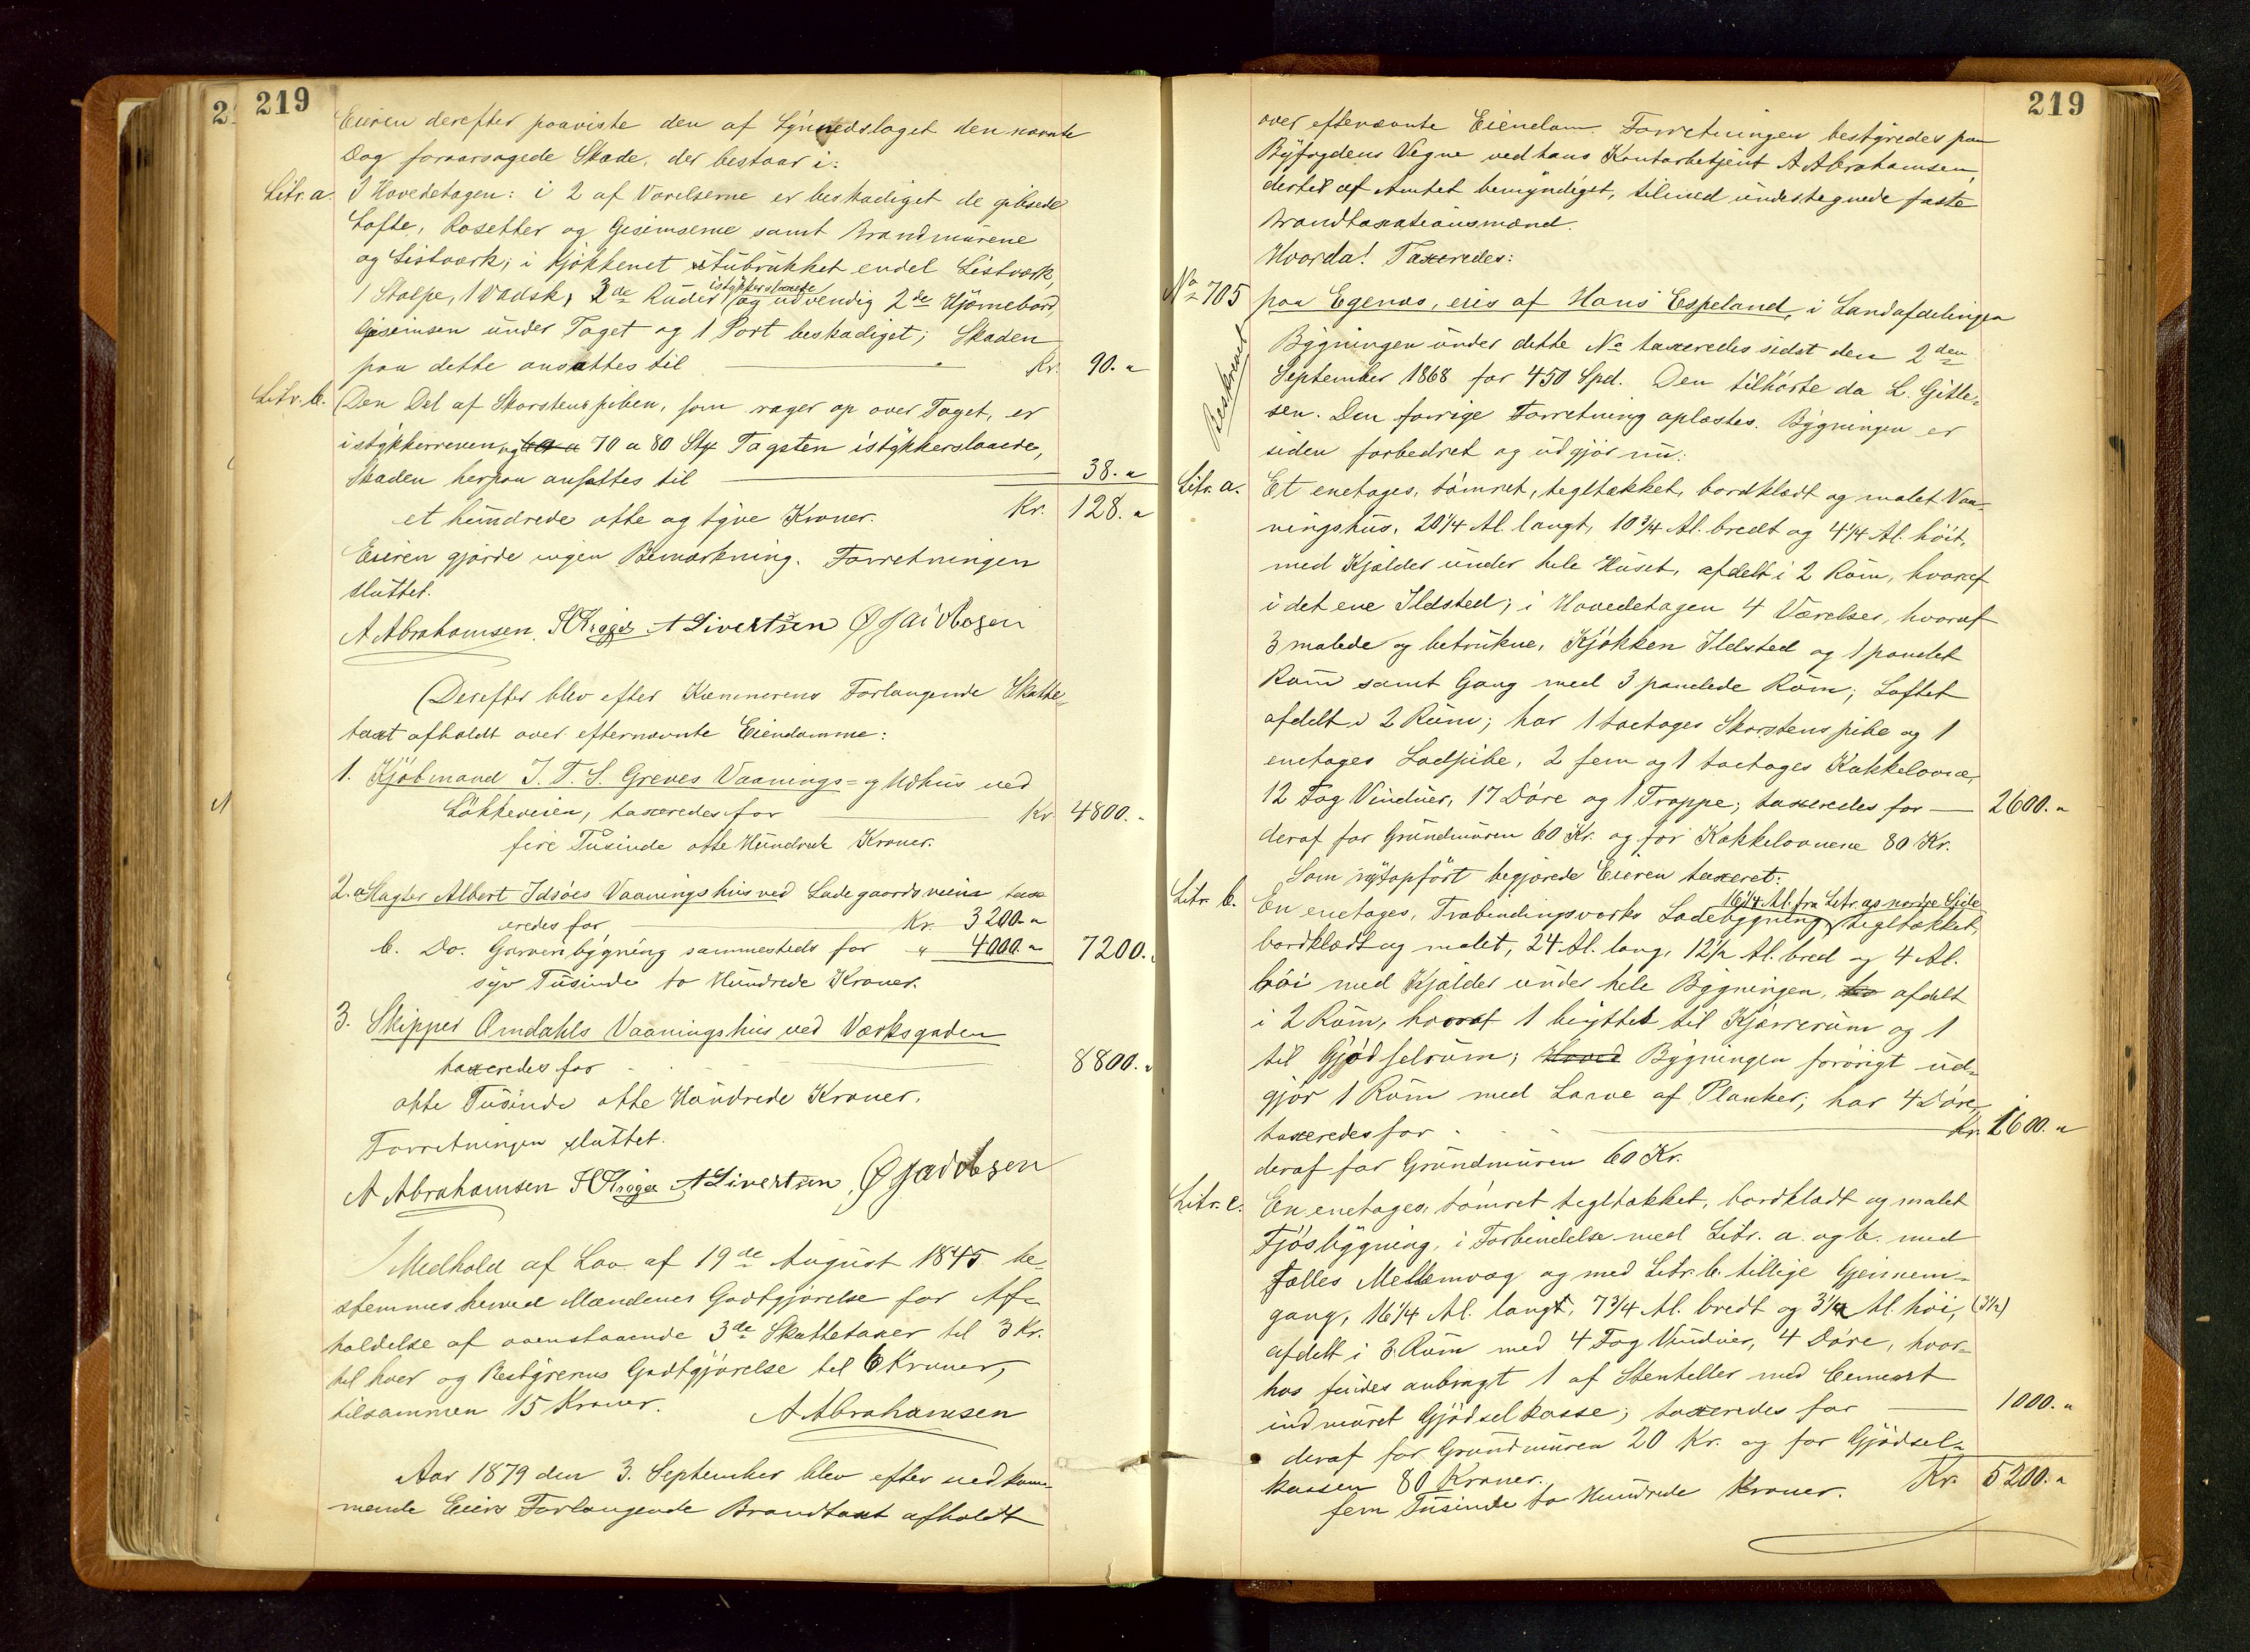 219
Eieren derefter paaviste den af Lynnedslaget den nævnte
Dag foraarsagede Skade, der bestaar i:
Litr. a. I Hovedetagen: i 2 af Værelserne er beskadiget de gibsede
Lofte, Rosetter og Gesimserne samt Brandmurene
og Listværk; i Kjøkkenet itubrukket endel Listværk,
1 Stolpe, 1 Vadsk, 3de Ruder istykkerslaaede og udvendig 2de Hjørnebord,
Gesimsen under Taget og 1 Port beskadiget; Skaden
paa dette ansættes til Kr. 90. "
Litr. b. Den Del af Skorstenspiben, som rager op over Taget, er
istykkerreven, og 70 a 80 Stk Tagsten istykkerslaaede,
Skaden herpaa ansættes til 38. "
et hundrede otte og tyve Kroner. Kr. 128. "
Eieren gjorde ingen Bemærkning. Forretningen
sluttet.
A Abrahamsen. A Sivertsen Ø Jacobsen
Derefter blev efter Kæmnerens Forlangende Skatte-
taxt afholdt over efternævnte Eiendomme:
1. Kjøbmand J. T. S. Greves Vaanings- og Udhus ved
Løkkeveien, taxeredes for Kr. 4800. "
fire Tusinde otte Hundrede Kroner.
2. a Slagter Albert Idsøes Vaaningshus ved Ladegaardsveien tax-
eredes for Kr. 3200. "
b. Do. Garveribygning sammesteds for " 4000. " 7200. "
syv Tusinde to Hundrede Kroner.
3. Skipper Omdahls Vaaningshus ved Værksgaden
taxeredes for 8800. "
otte Tusinde otte Hundrede Kroner.
Forretningen sluttet.
A Abrahamsen A Sivertsen, Ø Jacobsen
I Medhold af Lov af 19de August 1845 be-
stemmes herved Mændenes Godtgjørelse for Af-
holdelse af ovenstaaende 3de Skattetaxer til 3 Kr.
til hver og Bestyrerens Godtgjørelse til 6 Kroner,
tilsammen 15 Kroner. A Abrahamsen
Aar 1879 den 3. September blev efter vedkom-
mende Eiers Forlangende Brandtaxt afholdt
219
over efternævnte Eiendom. Forretningen bestyredes paa
Byfogdens Vegne ved hans Kontorbetjent A Abrahamsen,
dertil af Amtet bemyndiget, tilmed undertegnede faste
Brandtaxationsmænd.
Hvorda! Taxeredes:
No 705 paa Egenæs, eies af Hans Espeland, i Landafdelingen
Beskrevet
Bygningen under dette No taxeredes sidst den 2den
September 1868 for 450 Spd. Den tilhørte da L. Gitle-
sen. Den forrige Forretning oplæstes. Bygningen er
siden forbedret og udgjør nu:
Litr. a. Et enetages, tømret, tegltækket, bordklædt og malet Vaa-
ningshus, 20 1/4 Al. langt, 10 3/4 Al. bredt og 4 1/4 Al. høit,
med Kjælder under hele Huset, afdelt i 2 Rum, hvoraf
i det ene Ildsted; i Hovedetagen 4 Værelser, hvoraf
3 malede og betrukne, Kjøkken Ildsted og 1 panelet
Rum samt Gang med 3 panelede Rum; Loftet
afdelt i 2 Rum; har 1 toetages Skorstenspibe og 1
enetages Lodpibe, 2 fem og 1 toetages Kakkelovne,
12 Fag Vinduer, 17 Døre og 1 Trappe; taxeredes for 2600. "
deraf for Grundmuren 60 Kr. og for Kakkelovnene 80 Kr.
Som nytopført begjærede Eieren taxeret:
Litr. b. En enetages, Træbindingsværks Ladebygning, 16 1/4 Al. fra Litr. as nordre Side tegltækket,
bordklædt og malet, 24 Al. lang, 12 1/2 Al. bred og 4 Al.
høi med Kjælder under hele Bygningen, afdelt
i 2 Rum, hvoraf 1 benyttet til Kjærrerum og 1
til Gjødselrum; Hoved Bygningen forøvrigt ud-
gjør 1 Rum med Laave af Planker; har 4 Døre,
taxeredes for Kr. 1600. "
deraf for Grundmuren 60 Kr.
Litr. c. En enetages, tømret tegltækket, bordklædt og malet
Fjøsbygning, i Forbindelse med Litr. a. og b. med
fælles Mellemvæg og med Litr. b. tillige Gjennem-
gang, 16 1/4 Al. langt, 7 3/4 Al. bredt og 3 1/2 Al. høi, (3 1/2)
afdelt i 3 Rum med 4 Fag Vinduer, 4 Døre, hvor-
hos findes anbragt 1 af Stenheller med Cement
indmuret Gjødselkasse; taxeredes for 1000. "
deraf for Grundmuren 20 Kr. og for Gjødsel-
kassen 80 Kroner. Kr. 5200. "
fem Tusinde to Hundrede Kroner.